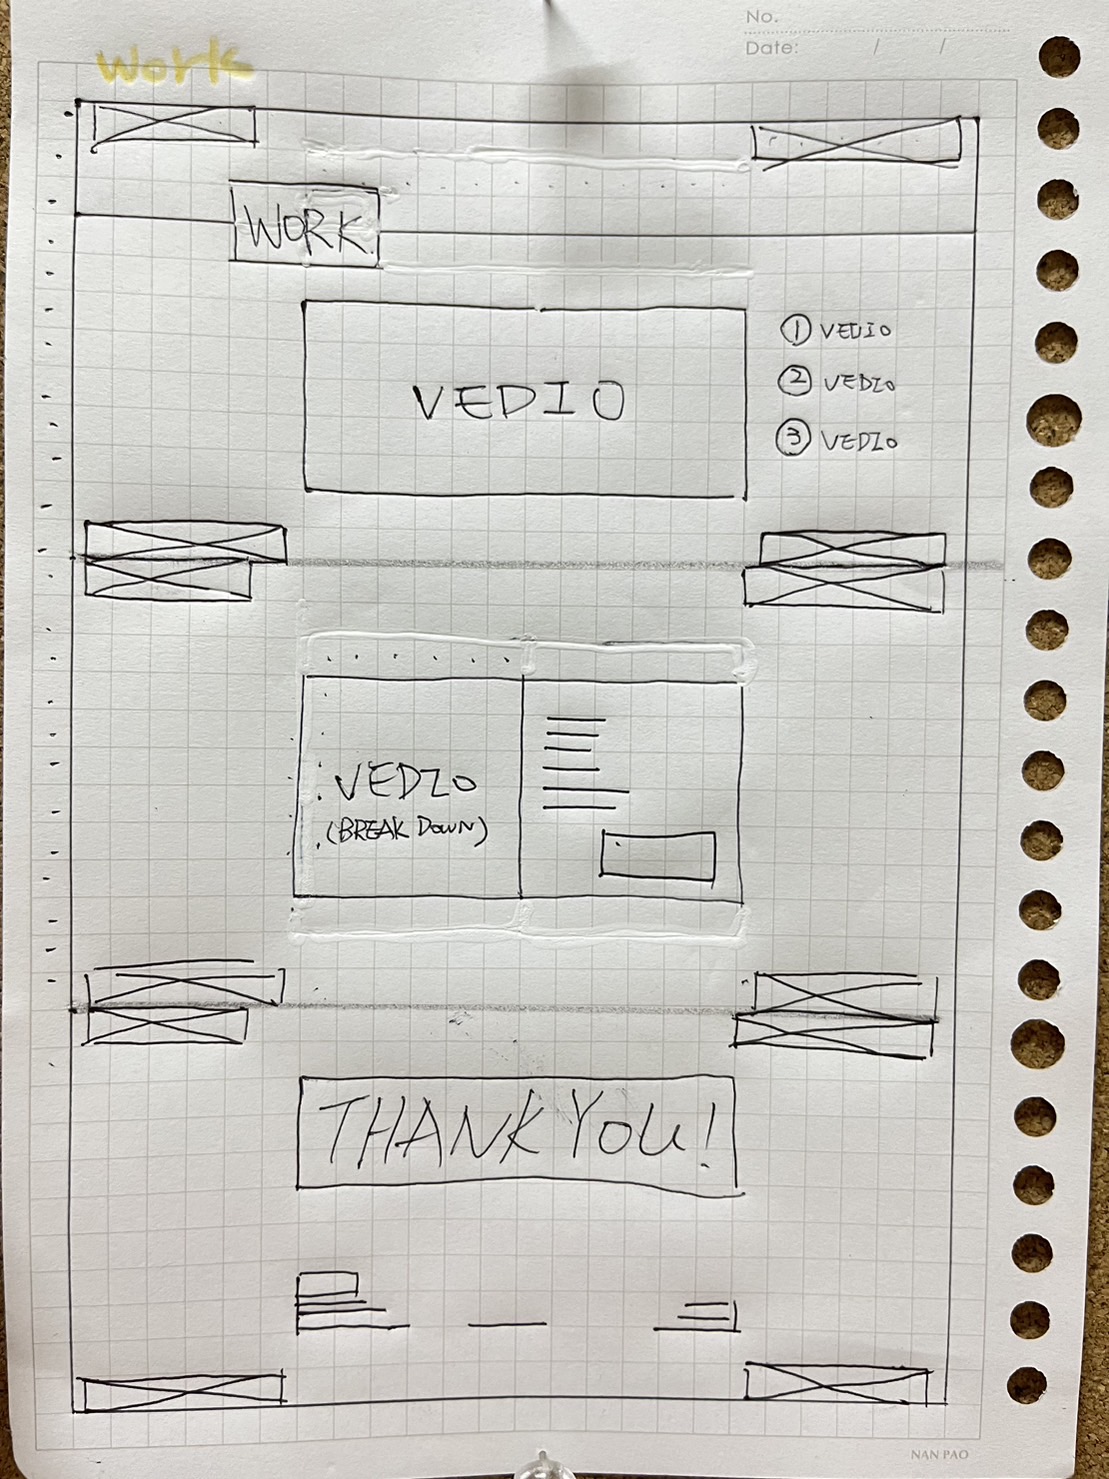 No.
Date: / /
Work
WORK
VEDIO
① VEDIO
② VEDIO
③ VEDIO
VEDIO
(BREAK DOWN)
THANK YOU!
NAN PAO